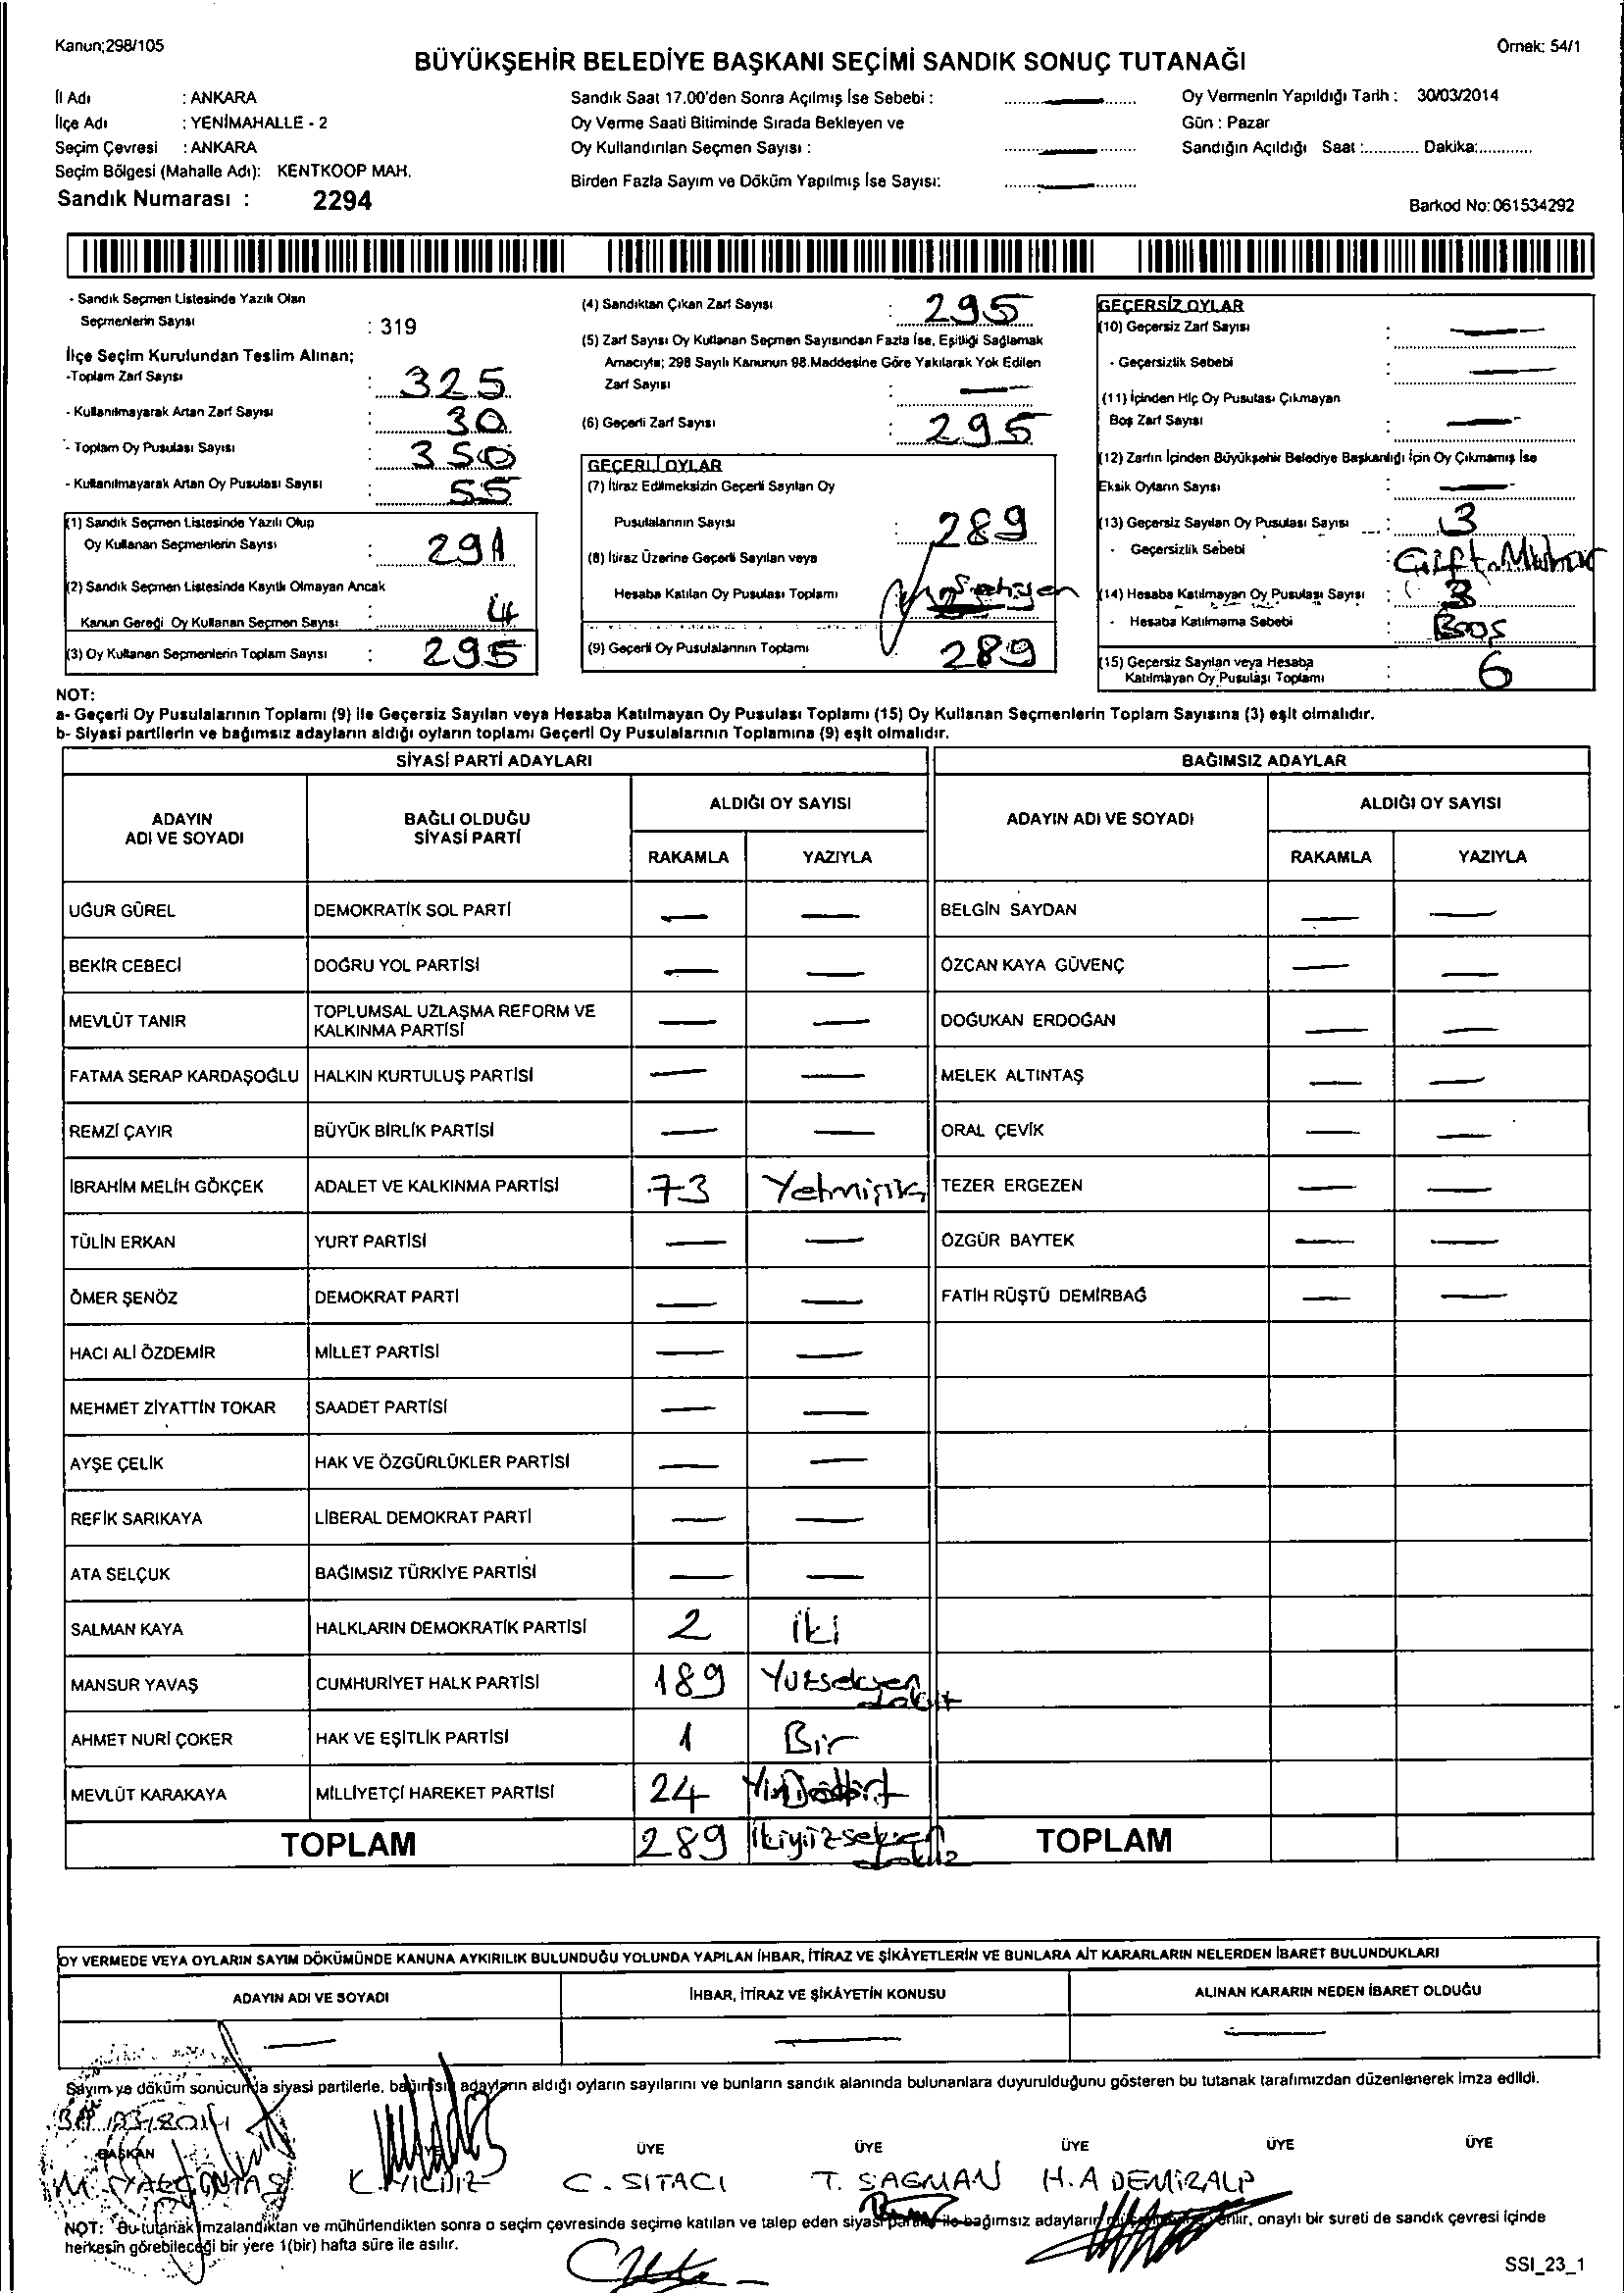 Kanun;298/105
Örnek: 54/1
BÜYÜKŞEHİR BELEDİYE BAŞKANI SEÇİMİ SANDIK SONUÇ TUTANAĞI
İl Adı : ANKARA
İlçe Adı : YENİMAHALLE - 2
Seçim Çevresi : ANKARA
Seçim Bölgesi (Mahalle Adı): KENTKOOP MAH.
Sandık Numarası : 2294
Sandık Saat 17.00'den Sonra Açılmış İse Sebebi :
Oy Verme Saati Bitiminde Sırada Bekleyen ve
Oy Kullandırılan Seçmen Sayısı :
Birden Fazla Sayım ve Döküm Yapılmış İse Sayısı:
Oy Vermenin Yapıldığı Tarih : 30/03/2014
Gün : Pazar
Sandığın Açıldığı Saat :............ Dakika:............
Barkod No:061534292
- Sandık Seçmen Listesinde Yazılı Olan
Seçmenlerin Sayısı : 319
İlçe Seçim Kurulundan Teslim Alınan;
-Toplam Zarf Sayısı : 325
- Kullanılmayarak Artan Zarf Sayısı : 30
- Toplam Oy Pusulası Sayısı : 350
- Kullanılmayarak Artan Oy Pusulası Sayısı : 55
(1) Sandık Seçmen Listesinde Yazılı Olup
Oy Kullanan Seçmenlerin Sayısı : 291
(2) Sandık Seçmen Listesinde Kayıtlı Olmayan Ancak
Kanun Gereği Oy Kullanan Seçmen Sayısı: 4
(3) Oy Kullanan Seçmenlerin Toplam Sayısı : 295
(4) Sandıktan Çıkan Zarf Sayısı : 295
(5) Zarf Sayısı Oy Kullanan Seçmen Sayısından Fazla İse, Eşitliği Sağlamak
Amacıyla; 298 Sayılı Kanunun 98.Maddesine Göre Yakılarak Yok Edilen
Zarf Sayısı :
(6) Geçerli Zarf Sayısı : 295
GEÇERLİ OYLAR
(7) İtiraz Edilmeksizin Geçerli Sayılan Oy
Pusulalarının Sayısı : 289
(8) İtiraz Üzerine Geçerli Sayılan veya
Hesaba Katılan Oy Pusulası Toplamı
(9) Geçerli Oy Pusulalarının Toplamı 289
GEÇERSİZ OYLAR
(10) Geçersiz Zarf Sayısı :
- Geçersizlik Sebebi :
(11) İçinden Hiç Oy Pusulası Çıkmayan
Boş Zarf Sayısı :
(12) Zarfın İçinden Büyükşehir Belediye Başkanlığı İçin Oy Çıkmamış İse
Eksik Oyların Sayısı :
(13) Geçersiz Sayılan Oy Pusulası Sayısı : 3
- Geçersizlik Sebebi : Çift Mühür
(14) Hesaba Katılmayan Oy Pusulası Sayısı : 3
- Hesaba Katılmama Sebebi : Boş
(15) Geçersiz Sayılan veya Hesaba
Katılmayan Oy Pusulası Toplamı : 6
NOT:
a- Geçerli Oy Pusulalarının Toplamı (9) ile Geçersiz Sayılan veya Hesaba Katılmayan Oy Pusulası Toplamı (15) Oy Kullanan Seçmenlerin Toplam Sayısına (3) eşit olmalıdır.
b- Siyasi partilerin ve bağımsız adayların aldığı oyların toplamı Geçerli Oy Pusulalarının Toplamına (9) eşit olmalıdır.
SİYASİ PARTİ ADAYLARI
BAĞIMSIZ ADAYLAR
ADAYIN
ADI VE SOYADI
BAĞLI OLDUĞU
SİYASİ PARTİ
ALDIĞI OY SAYISI
RAKAMLA YAZIYLA
ADAYIN ADI VE SOYADI
ALDIĞI OY SAYISI
RAKAMLA YAZIYLA
UĞUR GÜREL DEMOKRATİK SOL PARTİ — — BELGİN SAYDAN — —
BEKİR CEBECİ DOĞRU YOL PARTİSİ — — ÖZCAN KAYA GÜVENÇ — —
MEVLÜT TANIR TOPLUMSAL UZLAŞMA REFORM VE
KALKINMA PARTİSİ — — DOĞUKAN ERDOĞAN — —
FATMA SERAP KARDAŞOĞLU HALKIN KURTULUŞ PARTİSİ — — MELEK ALTINTAŞ — —
REMZİ ÇAYIR BÜYÜK BİRLİK PARTİSİ — — ORAL ÇEVİK — —
İBRAHİM MELİH GÖKÇEK ADALET VE KALKINMA PARTİSİ 73 TEZER ERGEZEN — —
TÜLİN ERKAN YURT PARTİSİ — — ÖZGÜR BAYTEK — —
ÖMER ŞENÖZ DEMOKRAT PARTİ — — FATİH RÜŞTÜ DEMİRBAĞ — —
HACI ALİ ÖZDEMİR MİLLET PARTİSİ — —
MEHMET ZİYATTİN TOKAR SAADET PARTİSİ — —
AYŞE ÇELİK HAK VE ÖZGÜRLÜKLER PARTİSİ — —
REFİK SARIKAYA LİBERAL DEMOKRAT PARTİ — —
ATA SELÇUK BAĞIMSIZ TÜRKİYE PARTİSİ — —
SALMAN KAYA HALKLARIN DEMOKRATİK PARTİSİ 2 iki
MANSUR YAVAŞ CUMHURİYET HALK PARTİSİ 189
AHMET NURİ ÇOKER HAK VE EŞİTLİK PARTİSİ 1 Bir
MEVLÜT KARAKAYA MİLLİYETÇİ HAREKET PARTİSİ 24
TOPLAM 289 TOPLAM
OY VERMEDE VEYA OYLARIN SAYIM DÖKÜMÜNDE KANUNA AYKIRILIK BULUNDUĞU YOLUNDA YAPILAN İHBAR, İTİRAZ VE ŞİKÂYETLERİN VE BUNLARA AİT KARARLARIN NELERDEN İBARET BULUNDUKLARI
ADAYIN ADI VE SOYADI İHBAR, İTİRAZ VE ŞİKÂYETİN KONUSU ALINAN KARARIN NEDEN İBARET OLDUĞU
Sayım ve döküm sonucunda siyasi partilerle, bağımsız adayların aldığı oyların sayılarını ve bunların sandık alanında bulunanlara duyurulduğunu gösteren bu tutanak tarafımızdan düzenlenerek imza edildi.
BAŞKAN ÜYE ÜYE ÜYE ÜYE ÜYE ÜYE
K. YILDIZ C. SITACI T. SAGMAN H.A DEMİRALP
NOT: Bu tutanak imzalandıktan ve mühürlendikten sonra o seçim çevresinde seçime katılan ve talep eden siyasi ile bağımsız adayların verilir, onaylı bir sureti de sandık çevresi içinde
herkesin görebileceği bir yere 1(bir) hafta süre ile asılır.
SSI_23_1